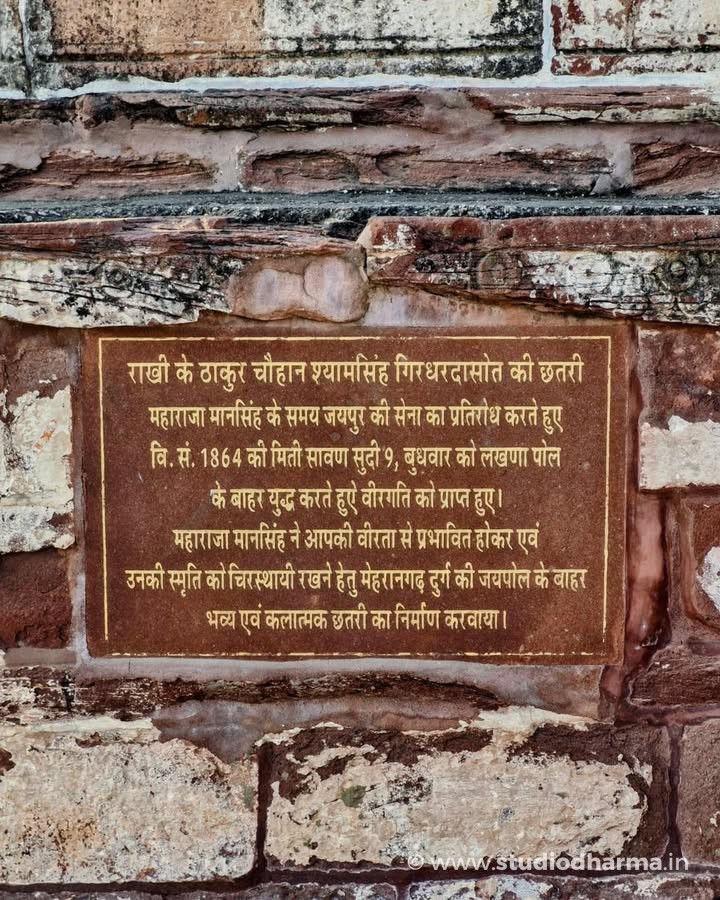 राखी के ठाकुर चौहान श्यामसिंह गिरधरदासोत की छतरी
महाराजा मानसिंह के समय जयपुर की सेना का प्रतिरोध करते हुए
वि. सं. 1864 की मिती सावण सुदी 9, बुधवार को लखणा पोल
के बाहर युद्ध करते हुऐ वीरगति को प्राप्त हुए।
महाराजा मानसिंह ने आपकी वीरता से प्रभावित होकर एवं
उनकी स्मृति को चिरस्थायी रखने हेतु मेहरानगढ़ दुर्ग की जयपोल के बाहर
भव्य एवं कलात्मक छतरी का निर्माण करवाया।
© www.studiodharma.in